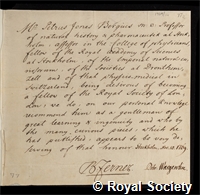 Mr. Petrus Jonas Bergius M. D. Professor
of natural history & pharmacie at Stock-
holm, assessor in the College of physicians,
fellow of the Royal Academy of Sciences
at Stockholm, of the Imperial naturæ
of the Societies
and of that physico-medical in
Switzerland, being desirous of becoming
a fellow of the Royal Society of Lon-
don, we do, on our personal knowledge
recommend him as a gentleman of
great learning & ingenuity and who by
the many curious pieces, which he
has published, appears to be very de-
serving of that honour. Stockholm
B Ferrner. Petr Wargentin
© The Royal Society